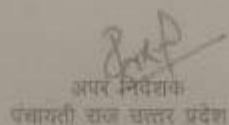 अपर निदेशक
पंचायती राज उत्तर प्रदेश